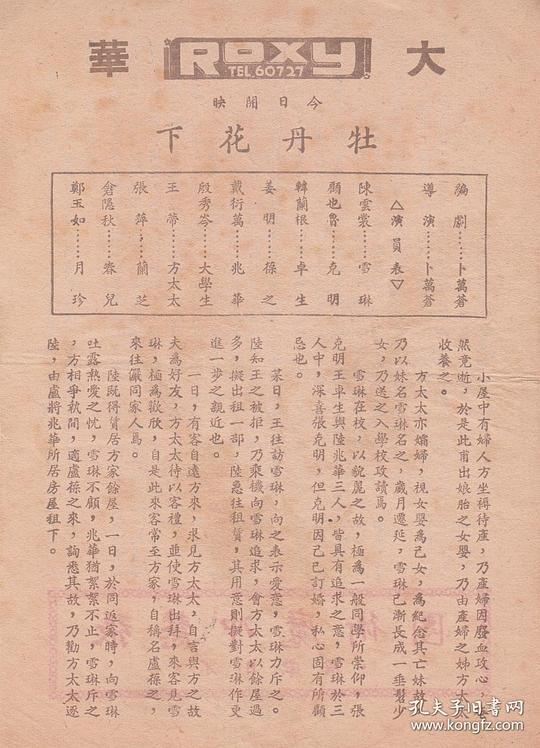 大華
ROXY
TEL.60727
今日開映
牡丹花下
編劇……卜萬蒼
導演……卜萬蒼
△演員表▽
陳雲裳……雪琳
顧也魯……克明
韓蘭根……卓生
姜明……葆之
戴衍萬……兆華
殷秀岑……大學生
王蒂……方太太
張萍……蘭芝
倉隱秋……春兒
鄭玉如……月珍
小屋中有婦人方坐褥待產,乃產婦因廢血攻心,
然竟逝,於是此甫出娘胎之女嬰,乃由產婦之姊方太太
收養之。
方太太亦孀婦,視女嬰為己女,為紀念其亡妹故
乃以妹名雪琳名之,歲月遷延,雪琳已漸長成一垂髫少
女,乃送之入學校攻讀焉。
雪琳在校,以貌麗之故,極為一般同學所崇仰,張
克明王卓生與陸兆華三人,皆具有追求之意,雪琳於三
人中,深喜張克明,但克明因已訂婚,私心固有所顧
忌也。
某日,王往訪雪琳,向之表示愛意,雪琳力斥之。
陸知王之被拒,乃乘機向雪琳追求,會方太太以餘屋過
多,擬出租一部,陸急往租賃,其用意則擬對雪琳作更
進一步之親近也。
一日,有客自遠方來,求見方太太,自言與方之故
夫為好友,方太太待以客禮,並使雪琳出拜,來客見雪
琳,極為歡欣,自是此來客常至方家,自稱名盧葆之,
來往儼同家人焉。
陸既得賃居方家餘屋,一日,於同返家時,向雪琳
吐露熱愛之忱,雪琳不顧,兆華猶絮絮不止,雪琳斥之
,方相爭執間,適盧葆之來,詢悉其故,乃勸方太太逐
陸,由盧將兆華所居房屋租下。
孔夫子旧书网
www.kongfz.com